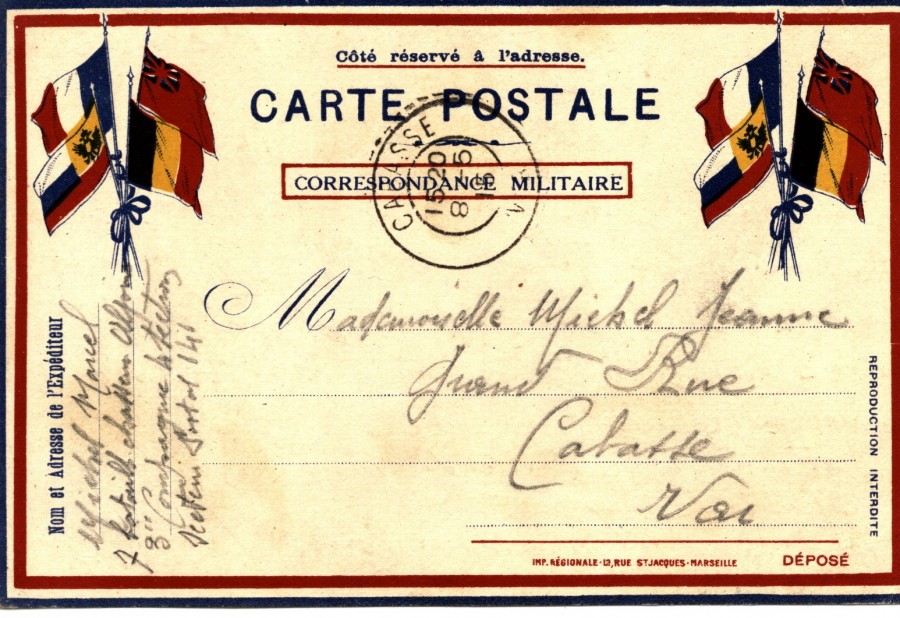 Côté réservé à l'adresse.
CARTE POSTALE
CORRESPONDANCE MILITAIRE
CABASSE
15*20
8-5
15
VAR
Mademoiselle Michel Jeanne
Grand Rue
Cabasse
Var
Nom et Adresse de l'Expéditeur
Michel Marcel
7 bataill chasseurs Alpins
3e Compagnie section
Secteur Postal 141
REPRODUCTION INTERDITE
IMP. RÉGIONALE-13, RUE ST JACQUES-MARSEILLE
DÉPOSÉ